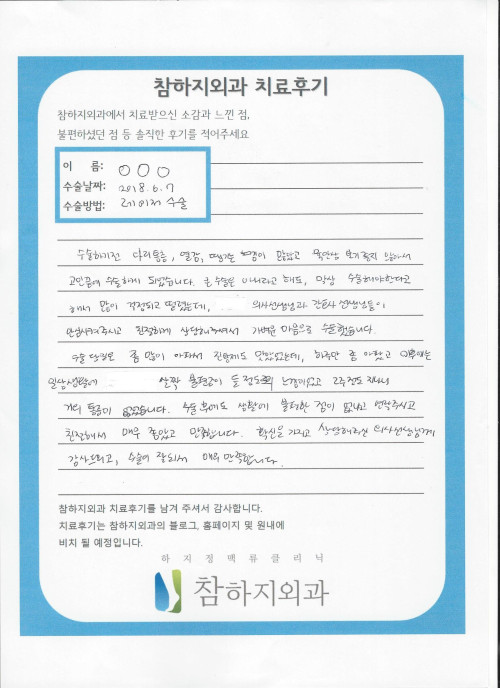 참하지외과 치료후기
참하지외과에서 치료받으신 소감과 느낀 점,
불편하셨던 점 등 솔직한 후기를 적어주세요
이 름: ○○○
수술날짜: 2018. 6. 7
수술방법: 레이저 수술
수술하기전 다리통증, 열감, 많았고 않아서
고민끝에 수술하게 되었습니다. 큰 수술은 아니라고 해도, 막상 수술해야한다고
해서 많이 걱정되고 떨렸는데, 의사선생님과 간호사 선생님들이
안심시켜주시고 친절하게 상담해주셔서 가벼운 마음으로 수술했습니다.
수술 당일은 좀 많이 아파서 진통제도 먹었었는데, 하루만 좀 아팠고 이후에는
일상생활에 살짝 불편감이 들 정도의 느낌이었고 2주정도 지나니
거의 통증이 없었습니다. 수술 후에도 생활에 불편한 점이 없나고 연락주시고
친절해서 매우 좋았고 만족합니다. 확신을 가지고 상담해주신 의사선생님께
감사드리고, 수술이 잘되서 매우 만족합니다.
참하지외과 치료후기를 남겨 주셔서 감사합니다.
치료후기는 참하지외과의 블로그, 홈페이지 및 원내에
비치 될 예정입니다.
하지정맥류클리닉
참하지외과